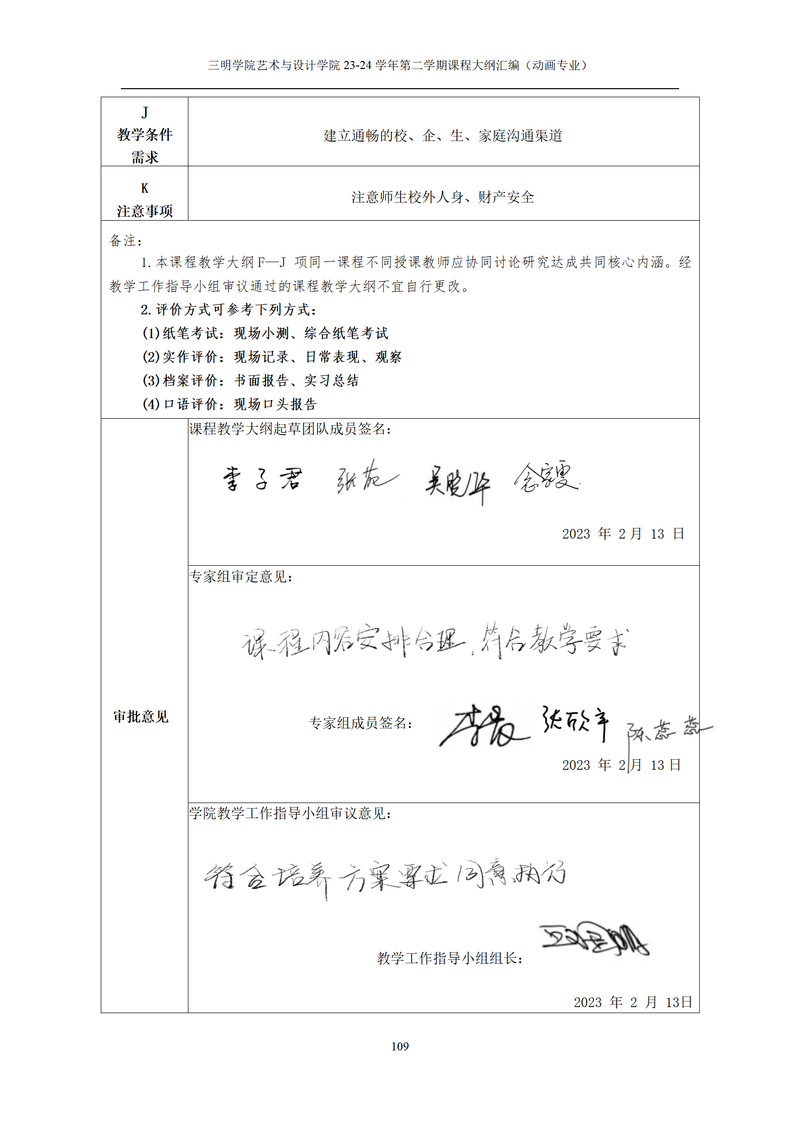 三明学院艺术与设计学院 23-24 学年第二学期课程大纲汇编（动画专业）
J
教学条件
需求
建立通畅的校、企、生、家庭沟通渠道
K
注意事项
注意师生校外人身、财产安全
备注：
1.本课程教学大纲 F—J 项同一课程不同授课教师应协同讨论研究达成共同核心内涵。经
教学工作指导小组审议通过的课程教学大纲不宜自行更改。
2.评价方式可参考下列方式：
(1)纸笔考试：现场小测、综合纸笔考试
(2)实作评价：现场记录、日常表现、观察
(3)档案评价：书面报告、实习总结
(4)口语评价：现场口头报告
审批意见
课程教学大纲起草团队成员签名：
李子君 张苑 吴晓华
2023 年 2 月 13 日
专家组审定意见：
课程内容安排合理，符合教学要求
专家组成员签名：
李晨 张欣宇 陈蕊蕊
2023 年 2 月 13 日
学院教学工作指导小组审议意见：
符合培养方案要求同意执行
教学工作指导小组组长：
2023 年 2 月 13日
109